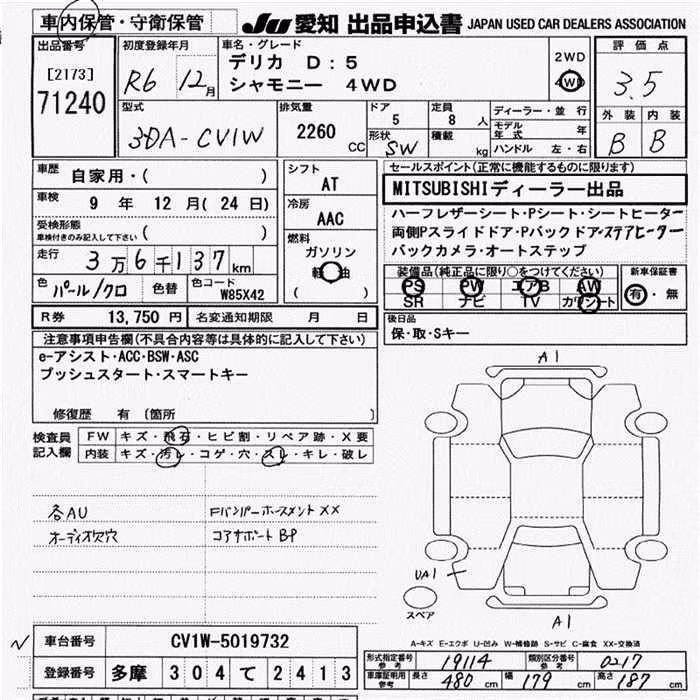 車内保管・守衛保管
JU 愛知 出品申込書 JAPAN USED CAR DEALERS ASSOCIATION
出品番号
[2173]
71240
初度登録年月
R6 12月
車名・グレード
デリカ D:5
シャモニー 4WD
2WD
4WD
評価点
3.5
外装 内装
B B
型式
3DA-CV1W
排気量
2260 CC
ドア
5
定員
8 人
形状
SW
積載
kg
ディーラー・並行
モデル年式 年
ハンドル 左・右
車歴
自家用・( )
車検
9 年 12 月( 24 日)
受検形態
車検付きのみ記入して下さい ( )
走行
3万6千137km
色 パール/クロ 色替 色コード W85X42
シフト
AT
冷房
AAC
燃料
ガソリン
軽油
( )
セールスポイント(正常に機能するものに限ります)
MITSUBISHIディーラー出品
ハーフレザーシート・Pシート・シートヒーター
両側Pスライドドア・Pバックドア・ステアヒーター
バックカメラ・オートステップ
装備品(純正品に限り○をつけてください)
PS PW エアB AW
SR ナビ TV カワシート
新車保証書
有・無
R券 13,750 円 名変通知期限 月 日
後日品
保・取・Sキー
注意事項申告欄(不具合内容等は具体的に記入して下さい)
e-アシスト・ACC・BSW・ASC
プッシュスタート・スマートキー
修復歴 有 〔箇所 〕
検査員記入欄
FW キズ・飛石・ヒビ割・リペア跡・X要
内装 キズ・汚レ・コゲ・穴・スレ・キレ・破レ
各AU
オーディオ欠穴
Fバンパーホースメント XX
コアサポート BP
A1
UA1
スペア
A1
A-キズ E-エクボ U-凹み W-補修跡 S-サビ C-腐食 XX-交換済
車台番号 CV1W-5019732
登録番号 多摩 304 て 2413
形式指定番号 参考 19114 類別区分番号 参考 0217
車庫証明用 参考 長さ 480 cm 幅 179 cm 高さ 187 cm